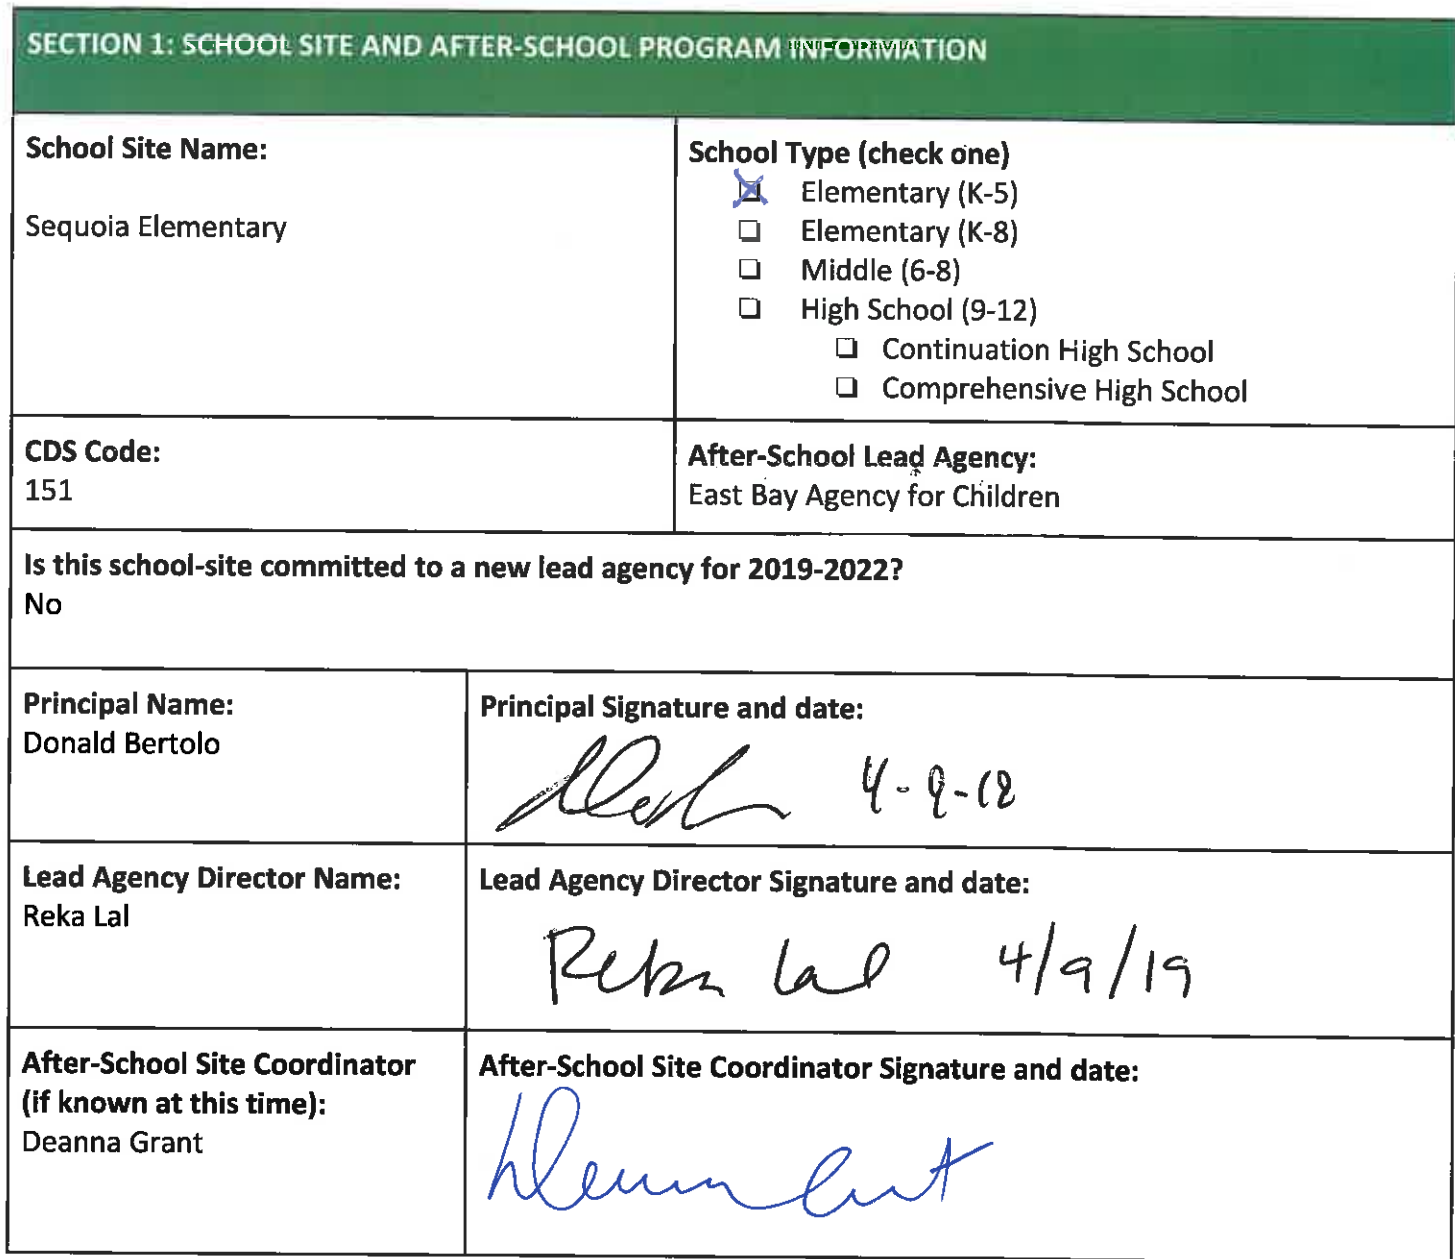 SECTION 1: SCHOOL SITE AND AFTER-SCHOOL PROGRAM INFORMATION
School Site Name:
Sequoia Elementary
School Type (check one)
Elementary (K-5)
Elementary (K-8)
Middle (6-8)
High School (9-12)
Continuation High School
Comprehensive High School
CDS Code:
151
After-School Lead Agency:
East Bay Agency for Children
Is this school-site committed to a new lead agency for 2019-2022?
No
Principal Name:
Donald Bertolo
Principal Signature and date:
Lead Agency Director Name:
Reka Lal
Lead Agency Director Signature and date:
Reka Lal 4/9/19
After-School Site Coordinator
(if known at this time):
Deanna Grant
After-School Site Coordinator Signature and date: